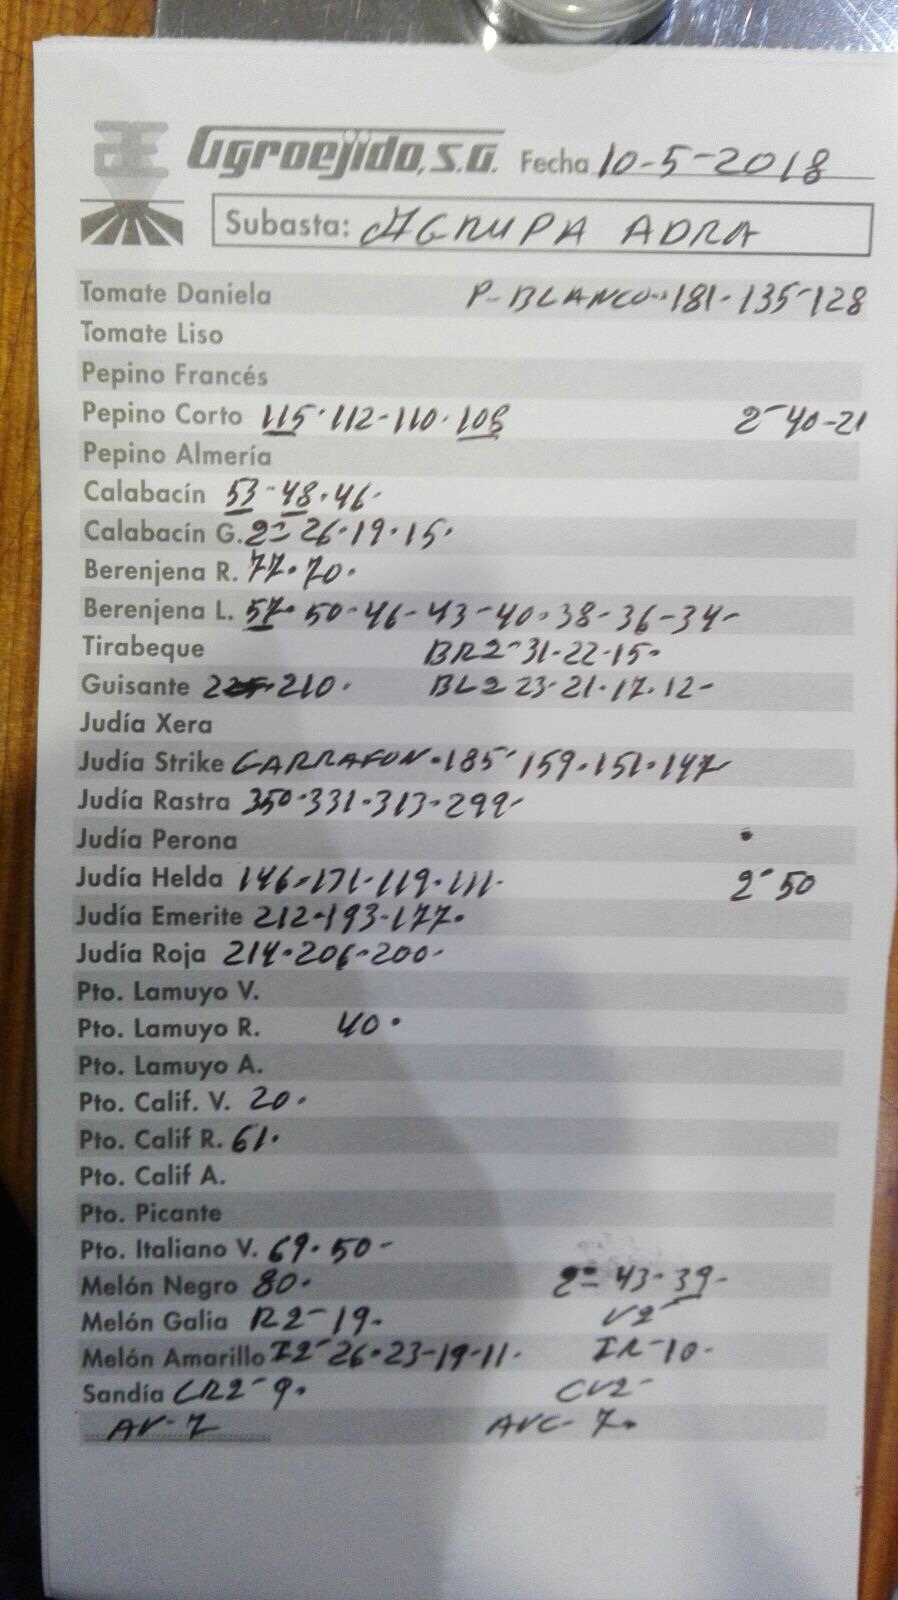 Agroejido, S.A. Fecha 10-5-2018
Subasta: AGRUPA ADRA
Tomate Daniela P-BLANCO-181-135-128
Tomate Liso
Pepino Francés
Pepino Corto 115-112-110-108 2-40-21
Pepino Almería
Calabacín 53-48-46-
Calabacín G. 2=26-19-15-
Berenjena R. 77-70-
Berenjena L. 57-50-46-43-40-38-36-34-
Tirabeque BR2-31-22-15-
Guisante 210- BL2 23-21-17-12-
Judía Xera
Judía Strike GARRAFON-185-159-151-147-
Judía Rastra 350-331-313-299-
Judía Perona
Judía Helda 146-131-119-111- 2-50
Judía Emerite 212-193-177-
Judía Roja 214-206-200-
Pto. Lamuyo V.
Pto. Lamuyo R. 40-
Pto. Lamuyo A.
Pto. Calif. V. 20-
Pto. Calif R. 61-
Pto. Calif A.
Pto. Picante
Pto. Italiano V. 69-50-
Melón Negro 80- 2=43-39-
Melón Galia R2-19- V2-
Melón Amarillo I2-26-23-19-11- IR-10-
Sandía CR2-9- CV2-
AV-7 AVC-7-